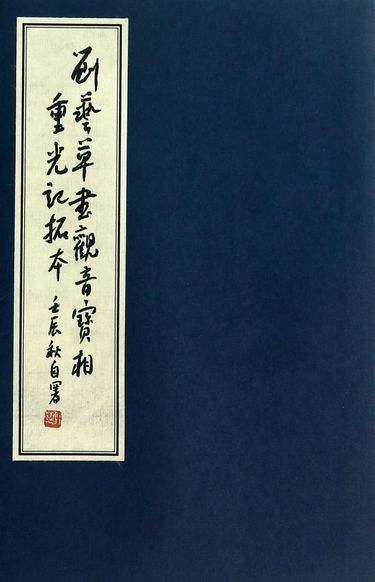 劉藝草書觀音寶相
重光記拓本
壬辰秋自署